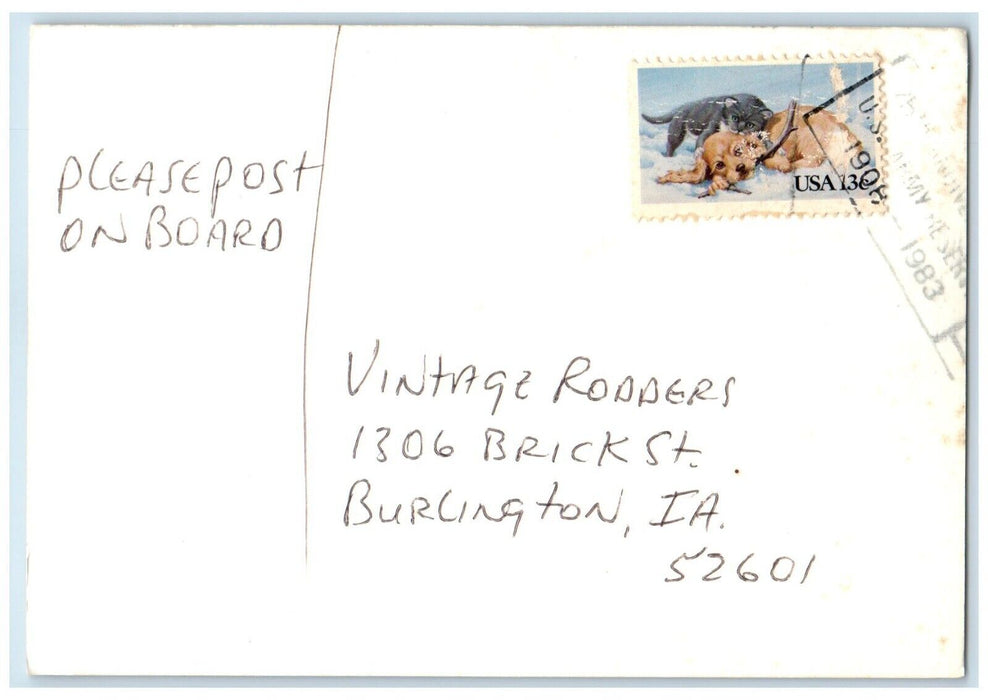 PLEASE POST
ON BOARD
USA 13c
U.S.
ARMY RESERV
1908
1983
VINTAGE RODDERS
1306 BRICK St.
BURLINGTON, IA.
52601